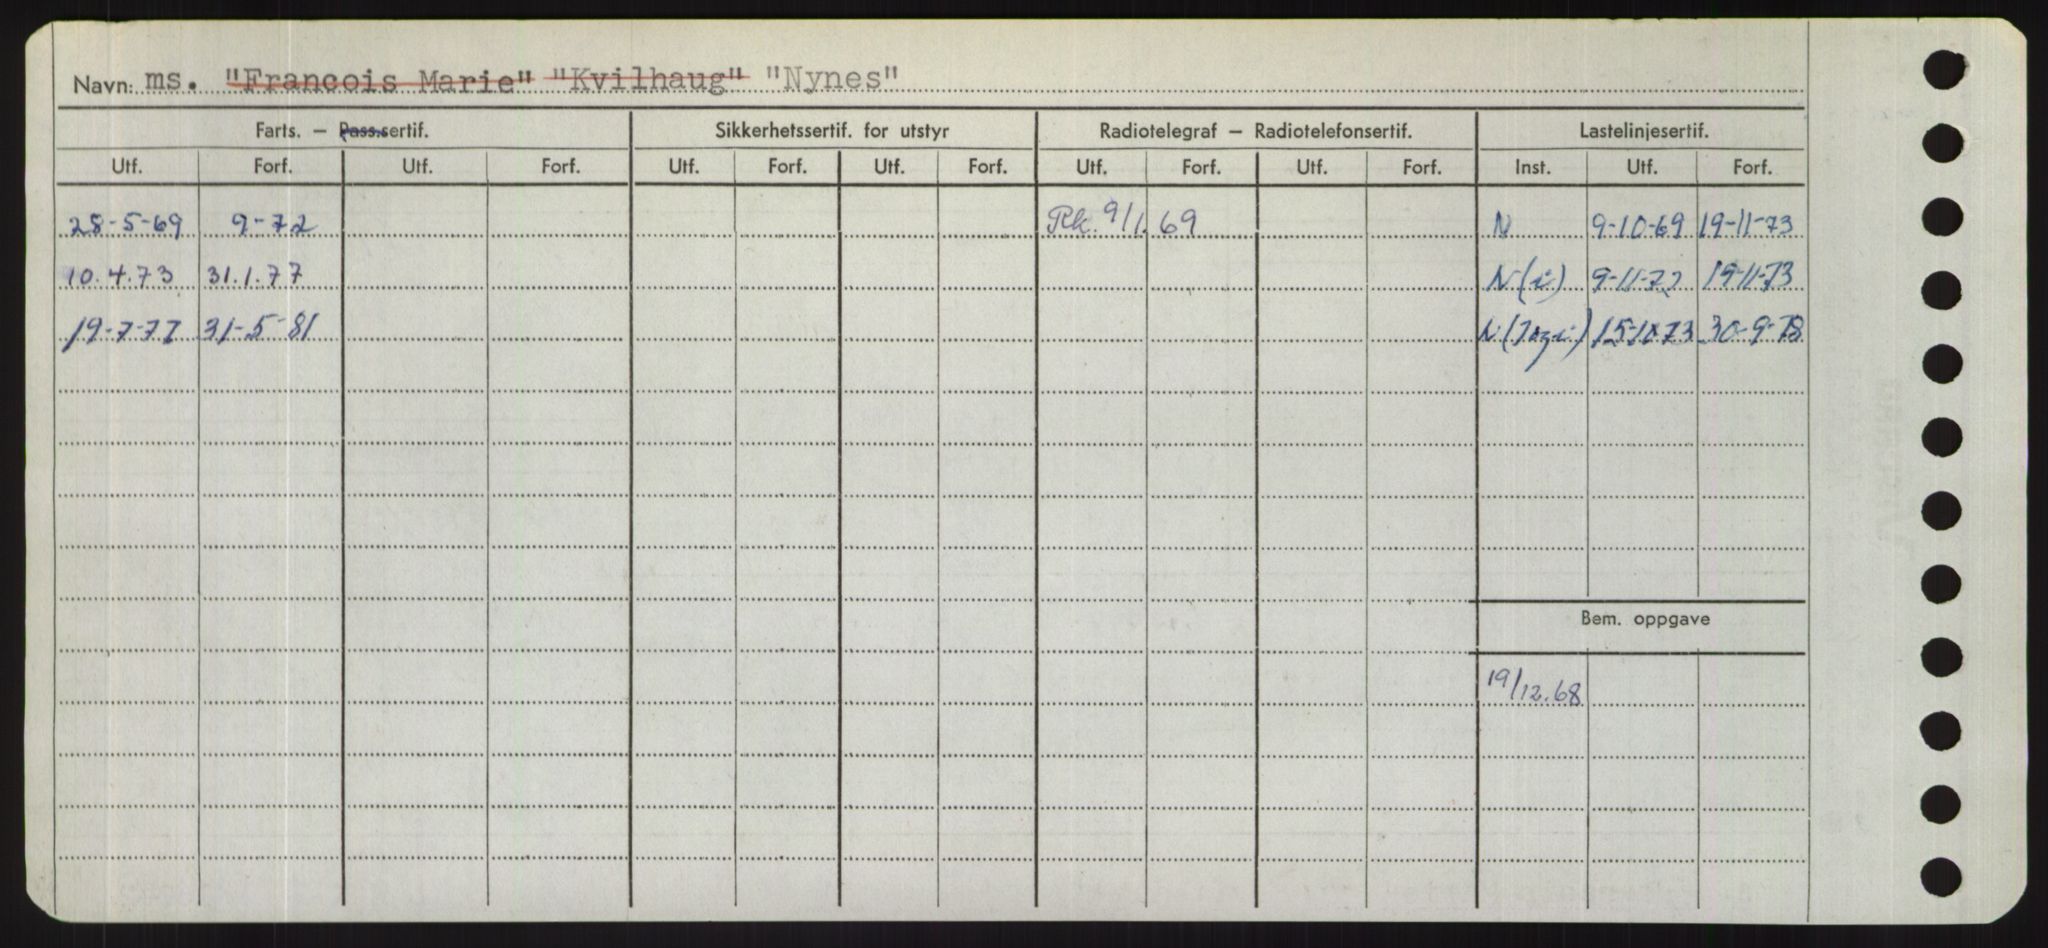 Navn: ms. "Francois Marie" "Kvilhaug" "Nynes"
Farts. — Pass.sertif. Sikkerhetssertif. for utstyr Radiotelegraf — Radiotelefonsertif. Lastelinjesertif.
Utf. Forf. Utf. Forf. Utf. Forf. Utf. Forf. Utf. Forf. Utf. Forf. Inst. Utf. Forf.
28-5-69 9-72 Rk. 9/1.69 N 9-10-69 19-11-73
10.4.73 31.1.77 N(i) 9-11-72 19-11-73
19-7-77 31-5-81 15-10-73 30-9-78
Bem. oppgave
19/12.68